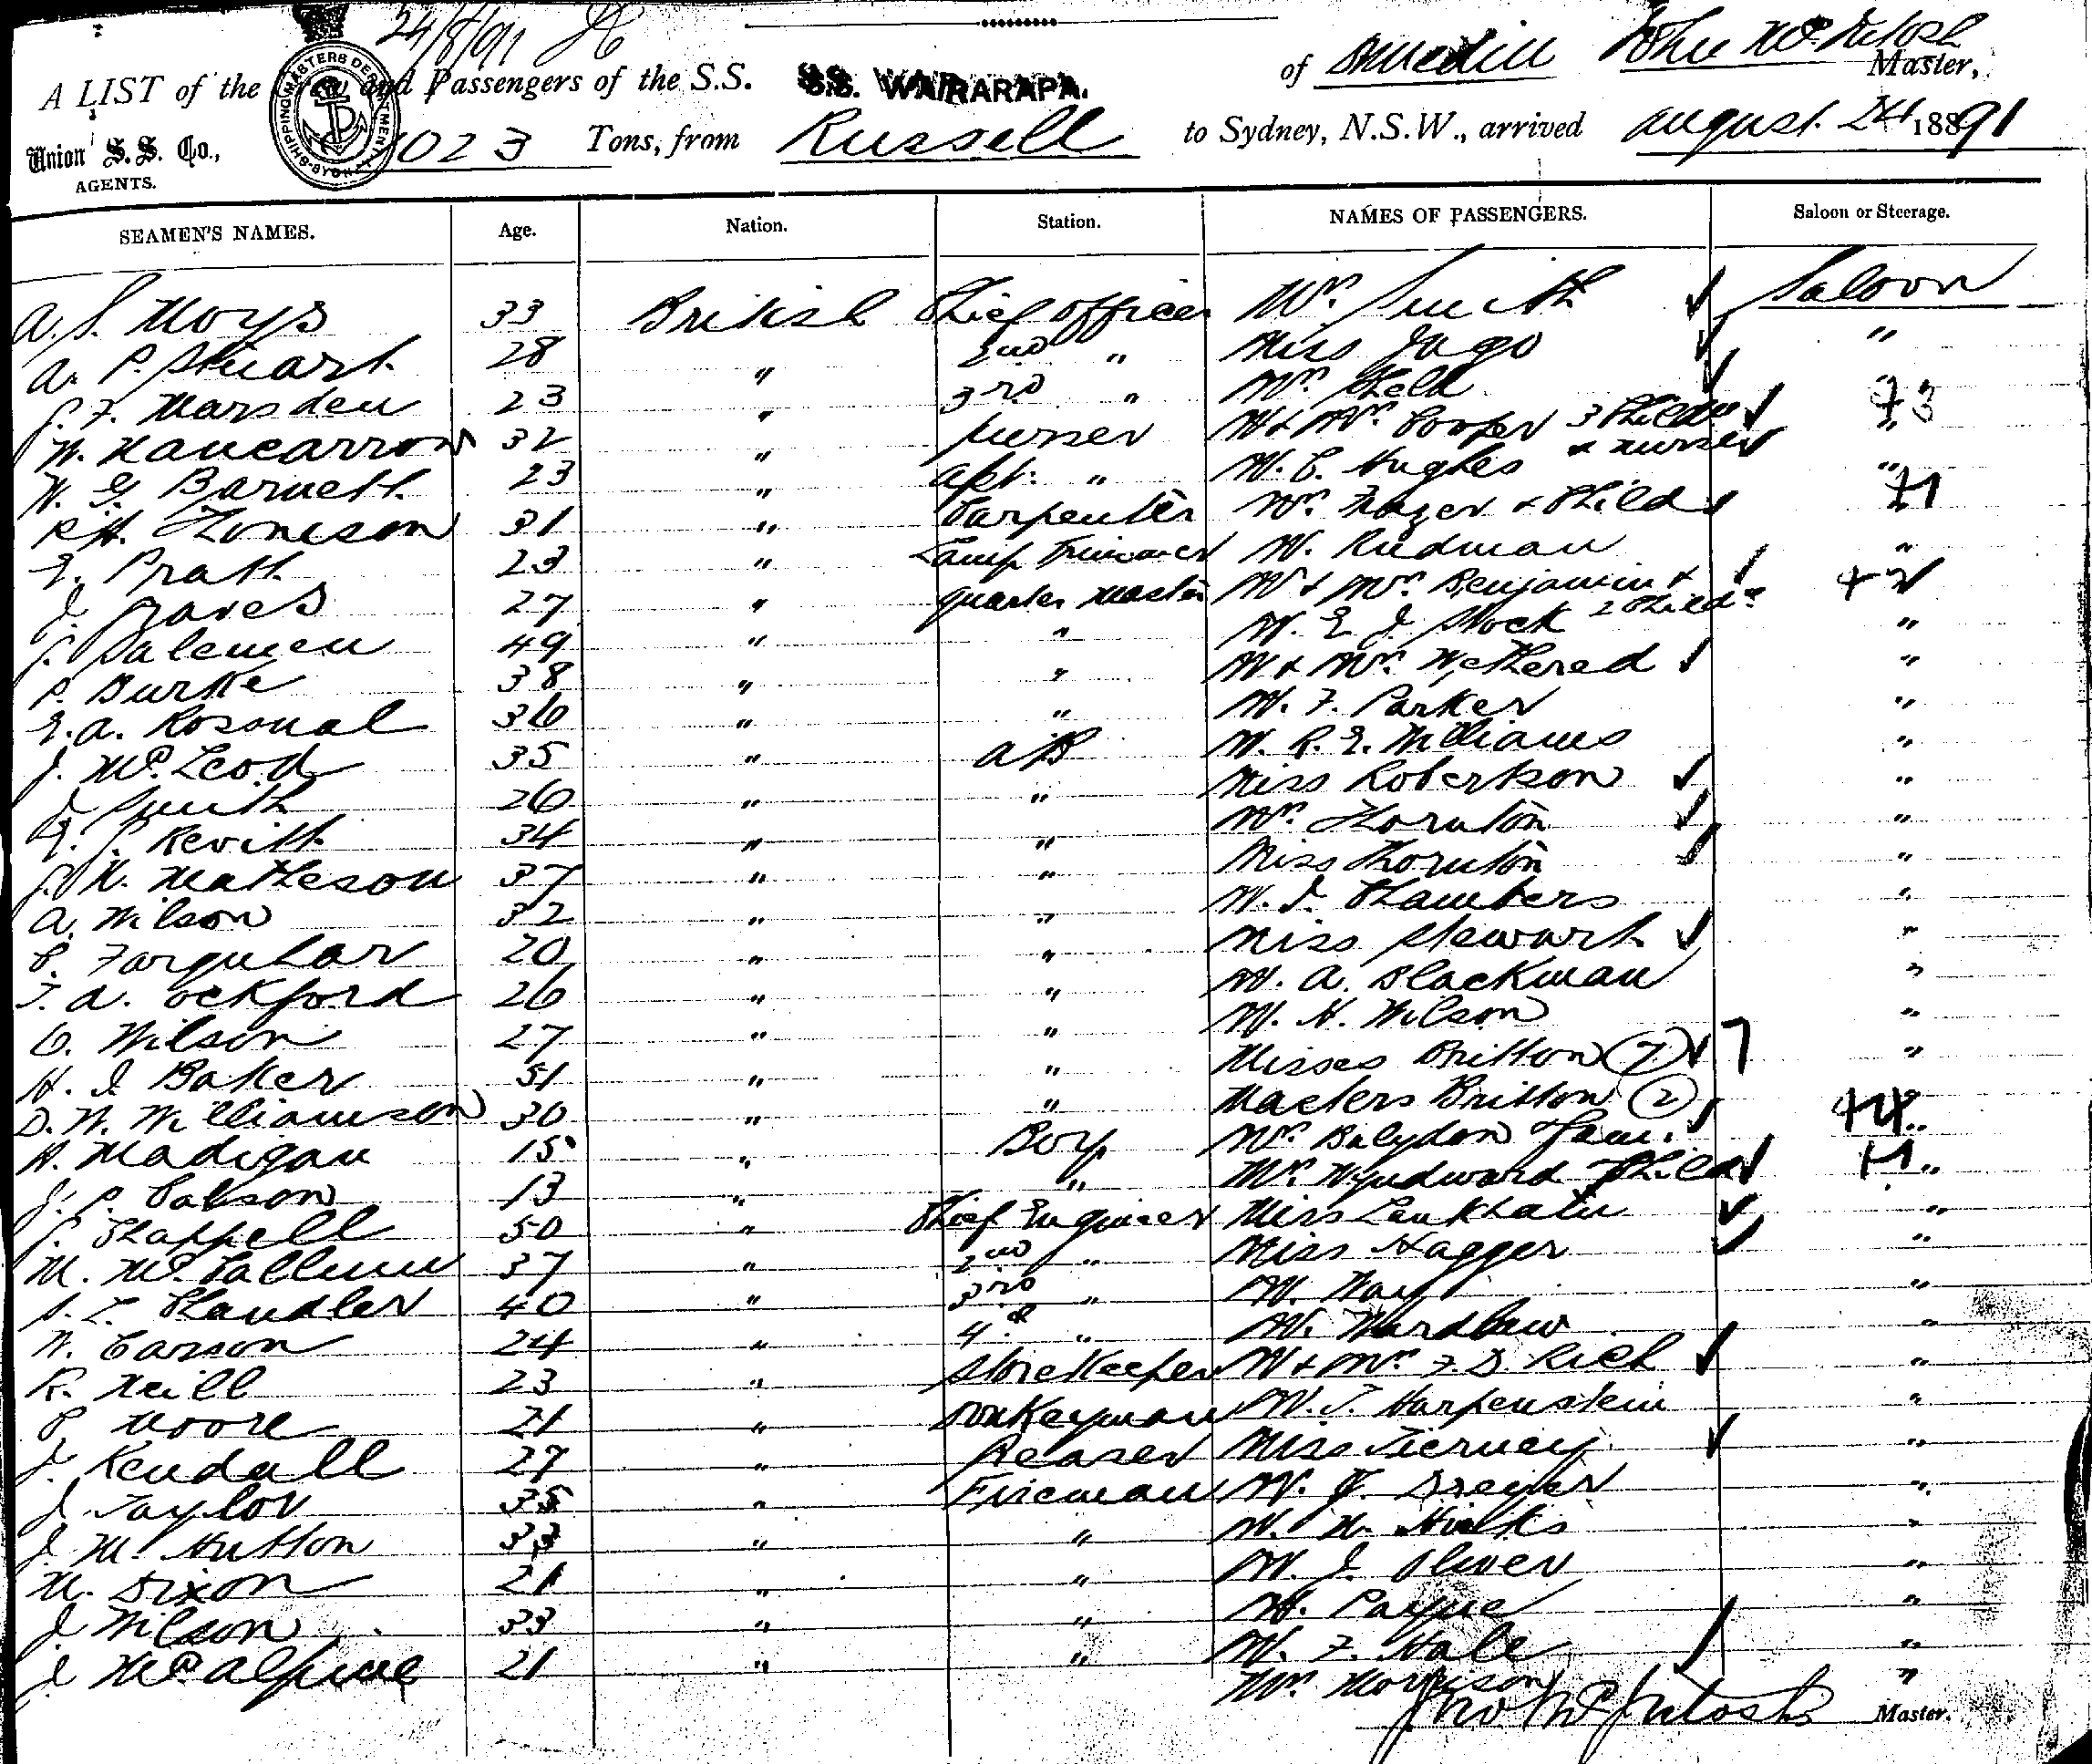 24/8/91
of Dunedin John McIntosh Master,
A LIST of the Crew and Passengers of the S.S. S.S. WAIRARAPA.
1023 Tons, from Russell to Sydney, N.S.W., arrived August 24 1891
Union S. S. Co.,
AGENTS.
SHIPPING MASTERS DEPARTMENT SYDNEY
SEAMEN'S NAMES. Age. Nation. Station. NAMES OF PASSENGERS. Saloon or Steerage.
A. S. Moys 33 British Chief Officer Mrs. Smith Saloon
A. P. Stuart 28 " 2nd " Miss Jago "
J. F. Marsden 23 " 3rd " Mrs. Held "
W. Nancarrow 32 " Purser Mr & Mrs. Cooper 3 Children & nurse 73
W. G. Barnett 23 " Apt. " Mr. C. Hughes "
R. H. Thomson 31 " Carpenter Mrs. Frazer & Child 71
E. Pratt 23 " Lamp Trimmer Mr. Rudman "
J. Graves 27 " Quarter Master Mr & Mrs. Benjamin & 2 Childn + 2
J. Salemen 49 " " Mr. E. J. Stock "
P. Burke 38 " " Mr & Mrs. Wethered "
E. A. Rosonal 36 " " Mr. F. Parker "
J. McLeod 35 " AB Mr. R. E. Williams "
J. Smith 26 " " Miss Robertson "
E. J. Revitt 34 " " Mrs. Thornton "
J. M. Matheson 37 " " Miss Thornton "
A. Wilson 32 " " Mr. J. Chambers "
C. Farquhar 20 " " Miss Stewart "
T. A. Ockford 26 " " Mr. A. Blackman "
O. Wilson 27 " " Mr. H. Wilson "
H. J. Baker 51 " " Misses Britton (7) 7 "
D. W. Williamson 30 " " Masters Britton (2)
H. Madigan 15 " Boy Mrs. Bulydon & fam. "
J. P. Catson 13 " " Mrs. Wyndward & Child "
J. Chappell 50 " Chief Engineer Miss "
M. McCallum 37 " 2nd " Miss Hagger "
S. L. Chandler 40 " 3rd " Mr. Way "
W. Carson 24 " 4th " Mr. Wardlaw "
R. Neill 23 " Storekeeper Mr & Mrs. F. D. Rich "
P. Moore 21 " Donkeyman Mr. T. Harpenstein "
J. Kendall 27 " Greaser Miss Tierney "
J. Taylor 35 " Fireman Mr. J. "
J. M. Hutton 33 " " Mr. N. Hicks "
M. Dixon 21 " " Mr. J. Oliver "
J. Wilson 33 " " Mr. Payne "
J. McAlpine 21 " " Mr. F. Hale "
Mrs. Morrison "
Jno McIntosh Master.